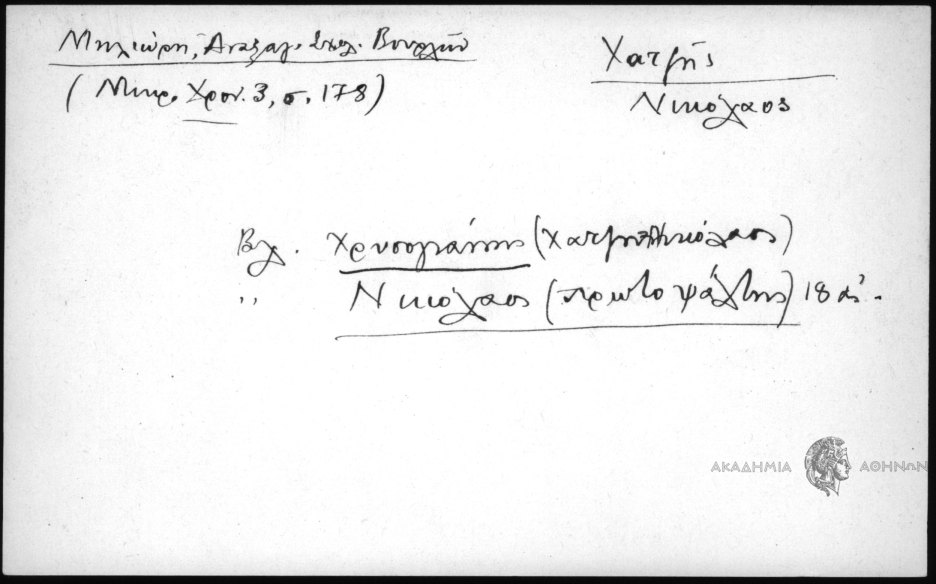 Μηλιώρη, Αναξαγ. Σχολ. Βουρλών
(Μικρ. Χρον. 3, σ. 178)
Χατζής
Νικόλαος
Βλ. Χρυσογιάννης (Χατζηνικόλαος)
,, Νικόλαος (πρωτοψάλτης) 18 αἰ.
ΑΚΑΔΗΜΙΑ ΑΘΗΝΩΝ